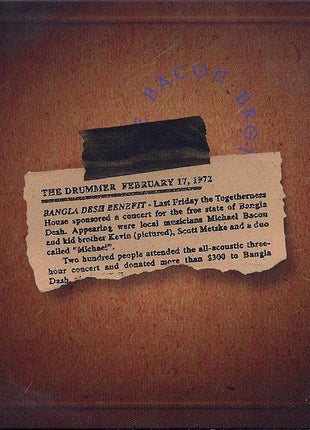 BACON BRO
THE DRUMMER FEBRUARY 17, 1972
BANGLA DESH BENEFIT - Last Friday the Togetherness
House sponsored a concert for the free state of Bangla
Desh. Appearing were local musicians Michael Bacon
and kid brother Kevin (pictured), Scott Metzke and a duo
called "Michael".
Two hundred people attended the all-acoustic three-
hour concert and donated more than $300 to Bangla
Desh